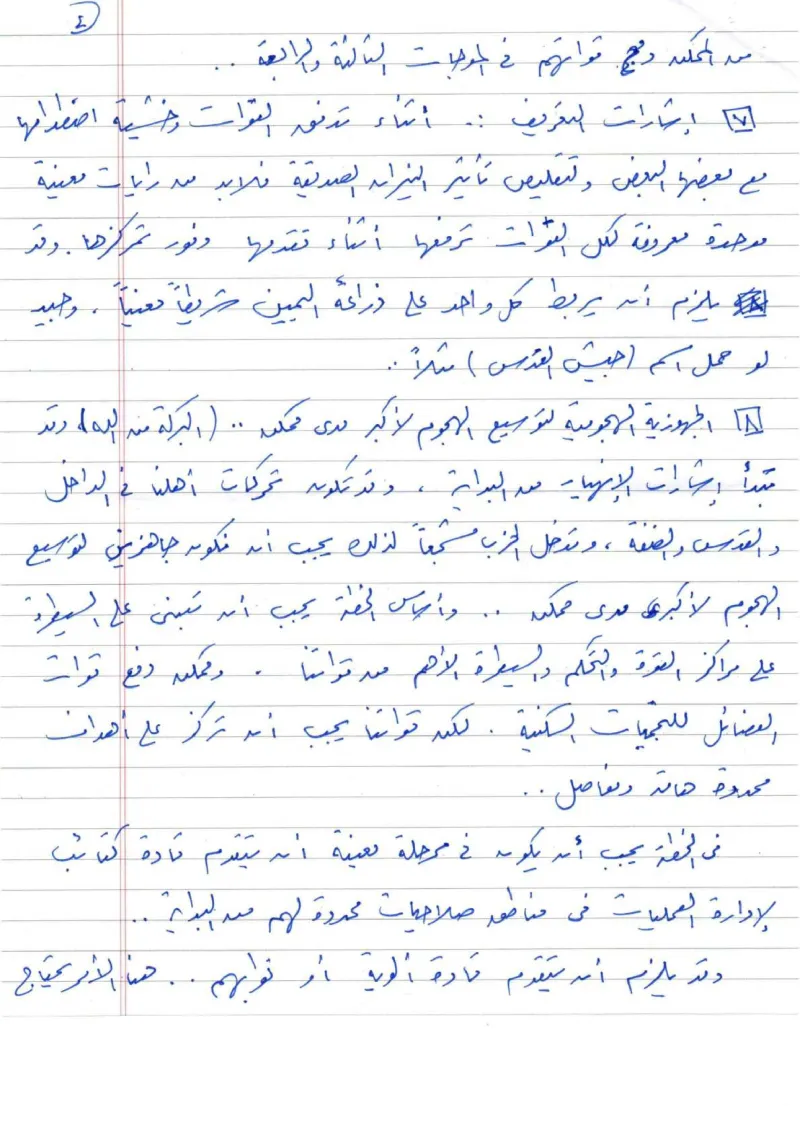 ٤
من الممكن دمج قواتهم في الموجات الثالثة والرابعة ..
٧ إشارات التعريف :. أثناء تدفق القوات وخشية اصطدامها
مع بعضها البعض ولتقليص تأثير النيران الصديقة فلابد من رايات معينة
موحدة معروفة لكل القوات ترفعها أثناء تقدمها وفور تمركزها. وقد
يلزم أن يربط كل واحد على ذراعه اليمين شريطاً معيناً ، وحبيد
لو حمل اسم (جيش القدس) مثلاً ..
٨ الجهوزية الهجومية لتوسيع الهجوم لأكبر مدى ممكن .. (البركة من الله) وقد
تبدأ إشارات الإنهيار من البداية ، وقد تكون تحركات أهلنا في الداخل
والقدس والضفة ، وتدخل الحزب مشجعاً لذلك يجب أن نكون جاهزين لتوسيع
الهجوم لأكبر مدى ممكن .. وأساس الخطة يجب أن تبنى على السيطرة
على مراكز القوة والتحكم والسيطرة الأهم من قواتنا . وممكن دفع قوات
الفصائل للتجمعات السكنية . لكن قواتنا يجب أن تركز على أهداف
محدودة هامة ومفاصل ..
في الخطة يجب أن يكون في مرحلة معينة أن يتقدم قادة كتائب
لإدارة العمليات في مناطق صلاحيات محددة لهم من البداية ..
وقد يلزم أن يتقدم قادة ألوية أو نوابهم .. هنا الأمر يحتاج